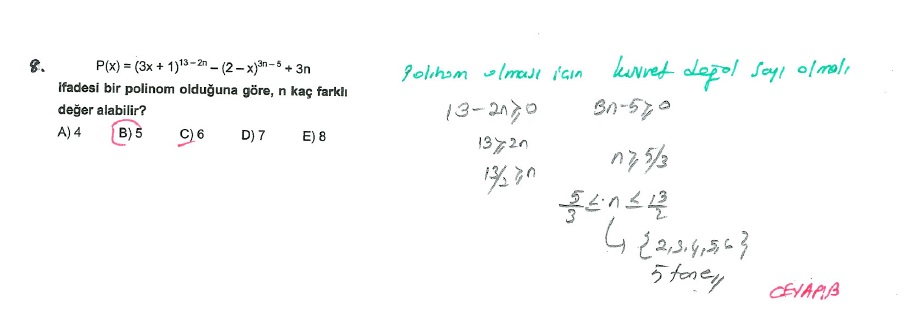 8. P(x) = (3x + 1)^13−2n − (2 − x)^3n−5 + 3n
ifadesi bir polinom olduğuna göre, n kaç farklı
değer alabilir?
A) 4 B) 5 C) 6 D) 7 E) 8
Polinom olması için kuvvet doğal sayı olmalı
13−2n≥0 3n−5≥0
13≥2n
n≥5/3
13/2≥n
5/3 ≤ n ≤ 13/2
↳ {2,3,4,5,6}
5 tane//
CEVAP B